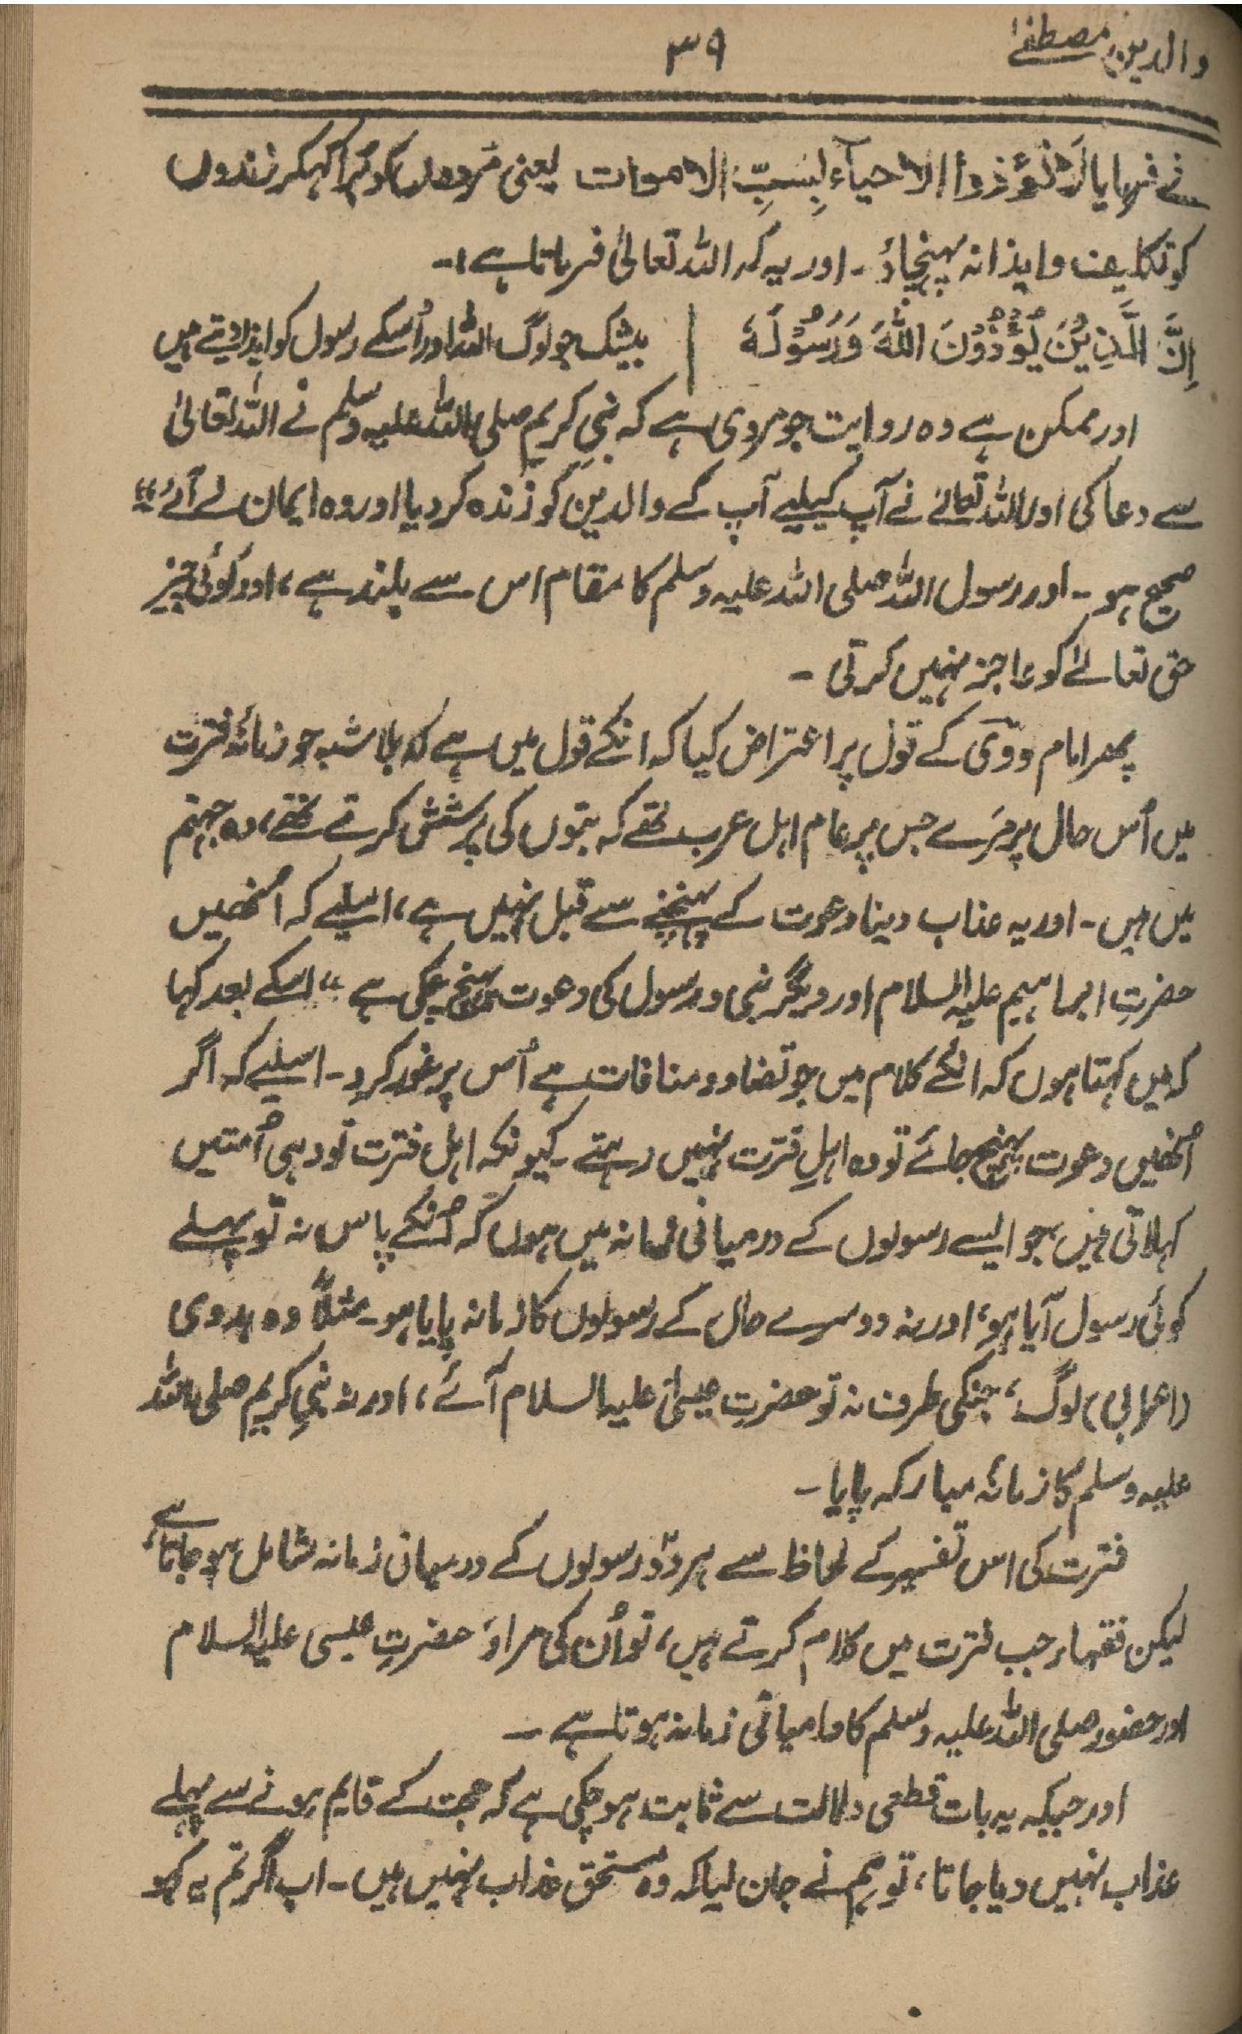 والدین مصطفےٰ
۳۹
نے فرمایا لَا تُؤذُوا الاحیآء بِسَبِّ الاموات یعنی مُردوں کو بُرا کہکر زندوں
کو تکلیف و ایذا نہ پہنچاؤ۔ اور یہ کہ اللہ تعالیٰ فرماتا ہے:۔
اِنَّ الَّذِیْنَ یُؤْذُوْنَ اللّٰهَ وَرَسُوْلَهٗ | بیشک جو لوگ اللہ اور اُسکے رسول کو ایذا دیتے ہیں
اور ممکن ہے وہ روایت جو مروی ہے کہ نبیِ کریم صلی اللہ علیہ وسلم نے اللہ تعالیٰ
سے دعا کی اور اللہ تعالےٰ نے آپ کیلیے آپ کے والدین کو زندہ کر دیا اور وہ ایمان لے آئے“
صحیح ہو۔ اور رسول اللہ صلی اللہ علیہ وسلم کا مقام اس سے بلند ہے، اور کوئی چیز
حق تعالےٰ کو عاجز نہیں کرتی۔
پھر امام نووی کے قول پر اعتراض کیا کہ انکے قول میں ہے کہ بلا شبہ جو زمانۂ فترت
میں اُس حال پر مَرے جس پر عام اہل عرب تھے کہ بتوں کی پرستش کرتے تھے، وہ جہنم
میں ہیں۔ اور یہ عذاب دینا دعوت کے پہنچنے سے قبل نہیں ہے، اسلیے کہ اُنھیں
حضرتِ ابراہیم علیہ السلام اور دیگر نبی و رسول کی دعوت پہنچ چکی ہے“ اسکے بعد کہا
کہ میں کہتا ہوں کہ انکے کلام میں جو تضاد و منافات ہے اُس پر غور کرو۔ اسلیے کہ اگر
اُنھیں دعوت پہنچ جائے تو وہ اہلِ فترت نہیں رہتے۔ کیونکہ اہل فترت تو وہی اُمتیں
کہلاتی ہیں جو ایسے رسولوں کے درمیانی زمانہ میں ہوں کہ اُنکے پاس نہ تو پہلے
کوئی رسول آیا ہو، اور نہ دوسرے حال کے رسولوں کا زمانہ پایا ہو۔ مثلاً وہ بدوی
(اعرابی) لوگ، جنکی طرف نہ تو حضرتِ عیسیٰ علیہ السلام آئے، اور نہ نبیِ کریم صلی اللہ
علیہ وسلم کا زمانۂ مبارکہ پایا۔
فترت کی اس تفسیر کے لحاظ سے ہر دو رسولوں کے درمیان زمانہ شامل ہو جاتا ہے،
لیکن فقہاء جب فترت میں کلام کرتے ہیں، تو اُن کی مراد حضرتِ عیسی علیہ السلام
اور حضور صلی اللہ علیہ وسلم کا درمیانی زمانہ ہوتا ہے۔
اور جبکہ یہ بات قطعی دلالت سے ثابت ہو چکی ہے کہ حجت کے قایم ہونے سے پہلے
عذاب نہیں دیا جاتا، تو ہم نے جان لیا کہ وہ مستحق عذاب نہیں ہیں۔ اب اگر تم یہ کہو